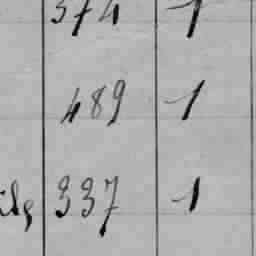 374 1
489 1
337 1